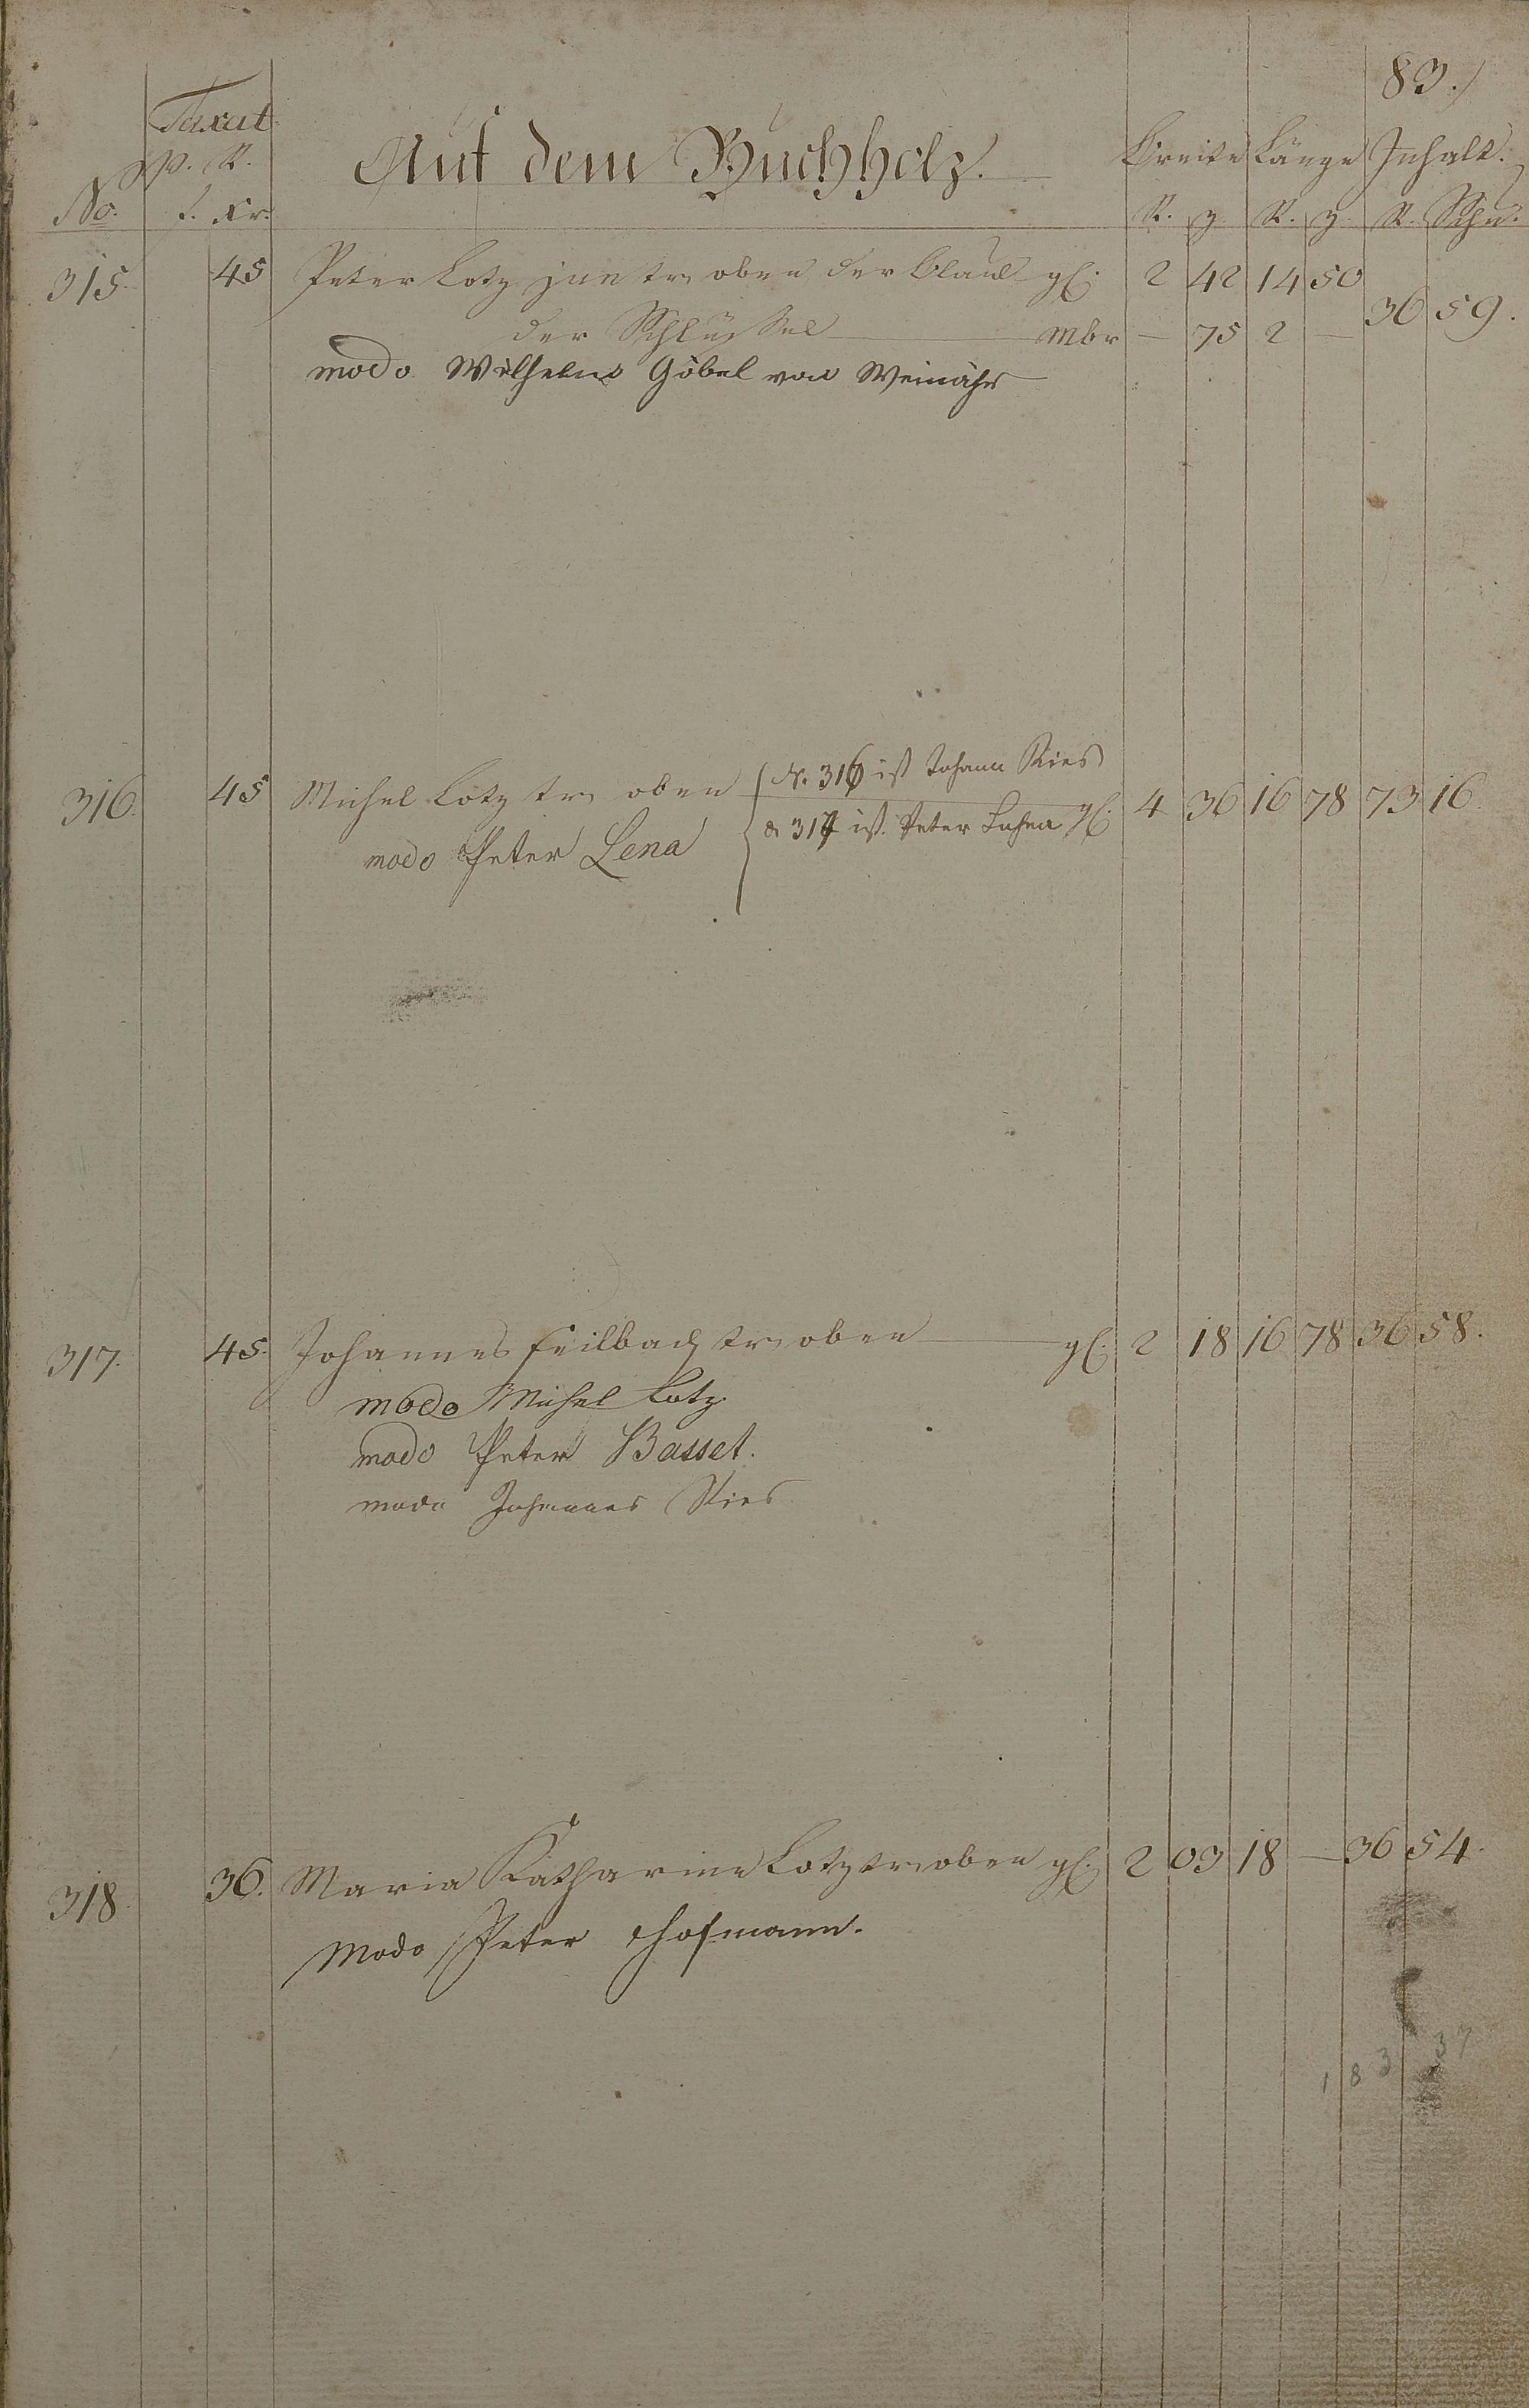 83.
Taxat
p. R.
Auf dem Buchholz.
Breite Länge Inhalt.
No. f. Xr. R. R. R. Sch.
315. 45 Peter Lotz jun oben der gl. 2 42 14 50
36 59.
der Schlüssel Mbr — 75 2 —
modo Wilhelm Göbel von Weinähr
316. 45 Michel Lotz oben
N. 316 ist Johann Ries
& 317 ist Peter Lehna gl. 4 36 16 78 73 16.
modo Peter Lena
317. 45. Johannes Feilbach oben gl. 2 18 16 78 36 58.
modo Michel Lotz
modo Peter Basset.
modo Johannes Ries
318. 36. Maria Katharina Lotz oben gl. 2 03 18 — 36 54.
Modo Peter Hofmann.
183 37